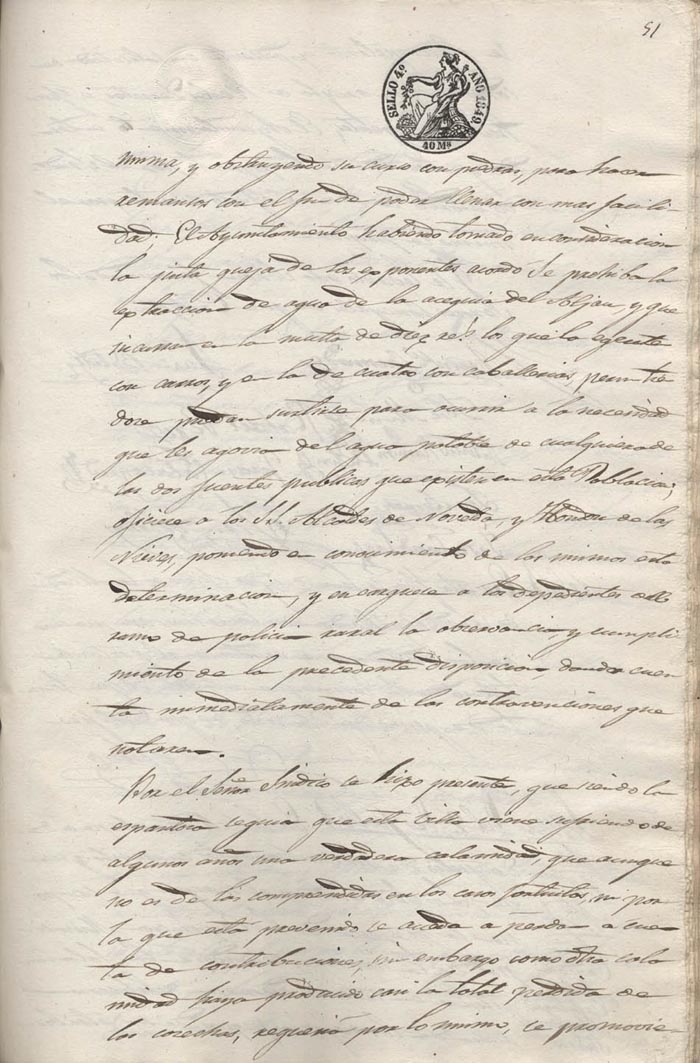 51
SELLO 4º AÑO 1848.
40 Ms
misma, y obstruyendo su curso con piedras, para hacer
remansos con el fin de poder llenar con mas facili-
dad. El Ayuntamiento habiendo tomado en consideracion
la justa queja de los exponentes acordó: Se prohiba la
extraccion de agua de la acequia del Aljau, y que
incurran en la multa de diez rs. los que la egecute
con carros, y en la de cuatro con caballerias, permitien
dose puedan surtirse para ocurrir a la necesidad
que les agovia del agua potable de cualquiera de
las dos fuentes publicas que existen en esta Poblacion;
oficiese a los SS. Alcaldes de Novelda, y Hondon de las
Nieves, poniendo en conocimiento de los mismos esta
determinacion, y encarguese a los dependientes del
ramo de policia rural la observancia, y cumpli-
miento de la precedente disposicion, dando cuen
ta inmediatamente de las contravenciones que
notaren.
Por el Señor Sindico se hizo presente, que siendo la
espantosa sequia que esta villa viene sufriendo de
algunos años una verdadera calamidad, que aunque
no es de las comprendidas en los casos fortuitos, ni por
la que está prevenido se acuda a perdon a cuen-
ta de contribuciones, sin embargo como otra cala
midad haya producido casi la total perdida de
las cosechas, requeria por lo mismo, se promovie-